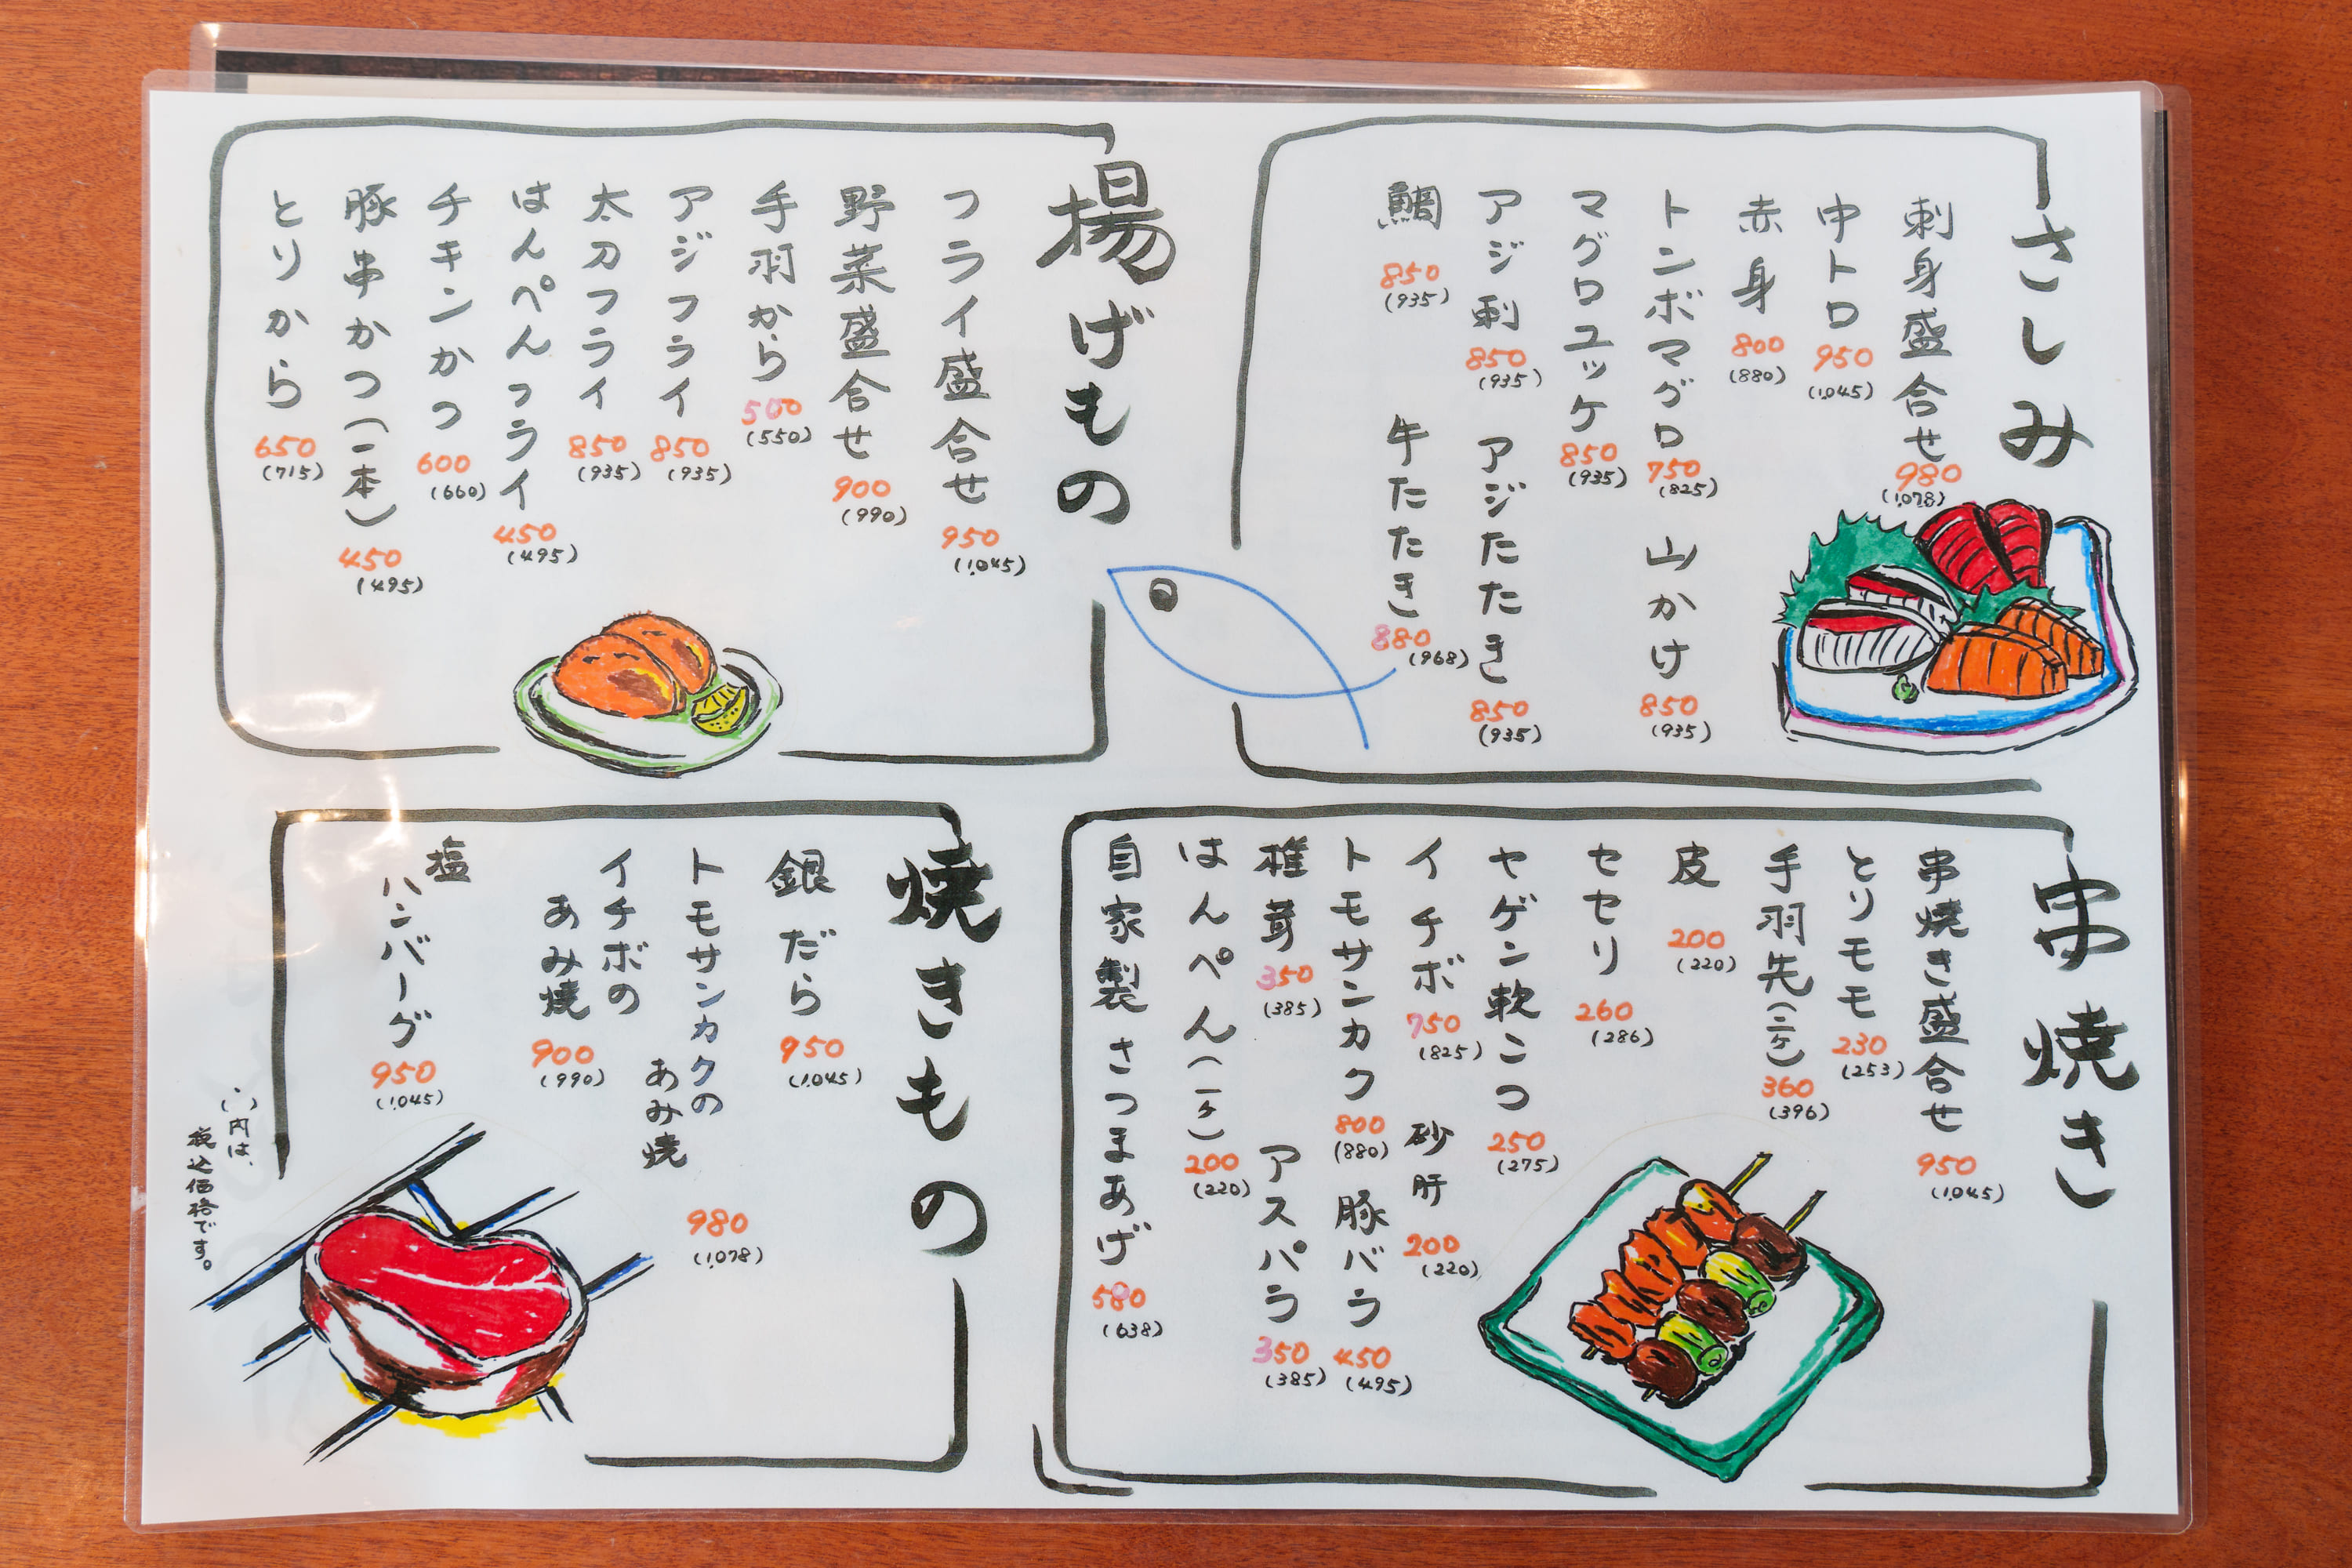 さしみ
刺身盛合せ 980 (1,078)
中トロ 950 (1,045)
赤身 800 (880)
トンボマグロ 750 (825)
山かけ 850 (935)
マグロユッケ 850 (935)
アジ刺 850 (935)
アジたたき 850 (935)
鯛 850 (935)
牛たたき 880 (968)
揚げもの
フライ盛合せ 950 (1,045)
野菜盛合せ 900 (990)
手羽から 500 (550)
アジフライ 850 (935)
太刀フライ 850 (935)
はんぺんフライ 450 (495)
チキンかつ 600 (660)
豚串かつ(一本) 450 (495)
とりから 650 (715)
串焼き
串焼き盛合せ 950 (1,045)
とりモモ 230 (253)
手羽先(二ケ) 360 (396)
皮 200 (220)
セセリ 260 (286)
ヤゲン軟こつ 250 (275)
イチボ 750 (825)
砂肝 200 (220)
トモサンカク 800 (880)
豚バラ 450 (495)
椎茸 350 (385)
アスパラ 350 (385)
はんぺん(一ケ) 200 (220)
自家製さつまあげ 580 (638)
焼きもの
銀だら 950 (1,045)
トモサンカクの
あみ焼 980 (1,078)
イチボの
あみ焼 900 (990)
塩
ハンバーグ 950 (1,045)
( )内は、
税込価格です。